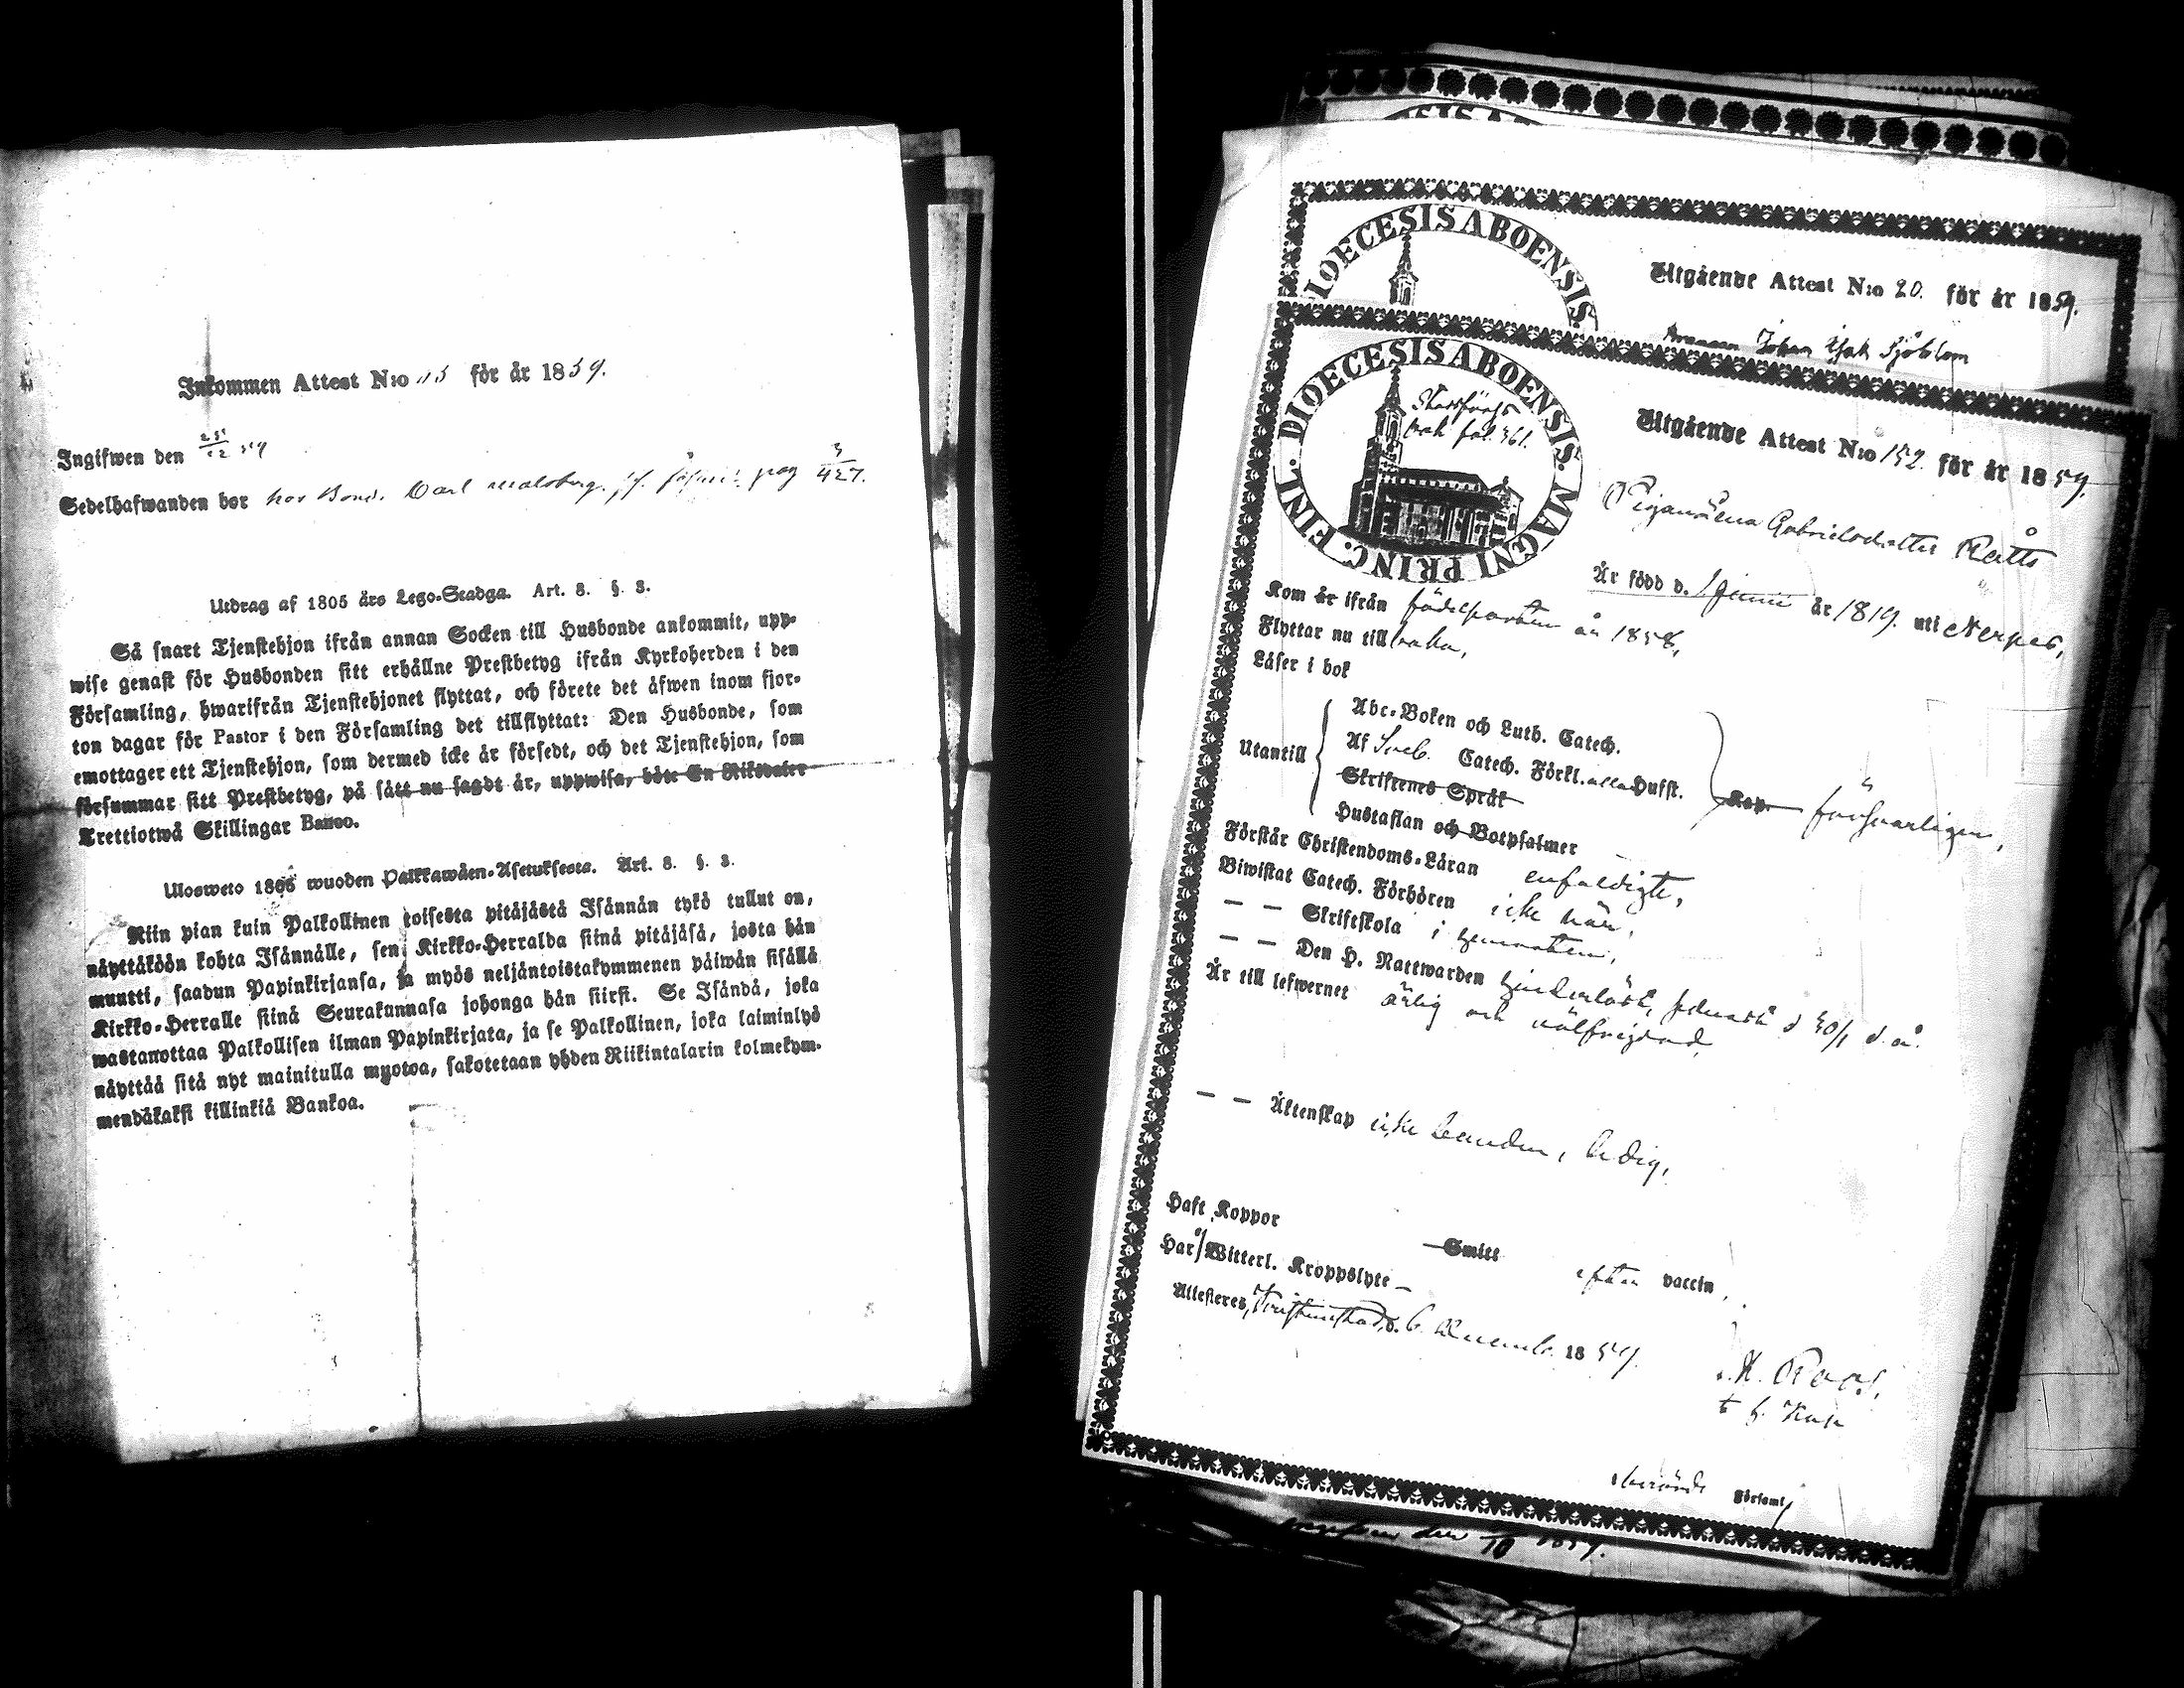 Inkommen Attest N:o för år 1859.
Ingifwen den
Sedelhafwanden bor hos Bond. Carl pag 3/427.
Utdrag af 1805 års Lego-Stadga. Art. 8. §. 3.
Så snart Tjenstehjon ifrån annan Socken till Husbonde ankommit, upp-
wise genast för Husbonden sitt erhållne Prestbetyg ifrån Kyrkoherden i den
Församling, hwarifrån Tjenstehjonet flyttat, och förete det äfwen inom fjor-
ton dagar för Pastor i den Församling det tillflyttat: Den Husbonde, som
emottager ett Tjenstehjon, som dermed icke är försedt, och det Tjenstehjon, som
försummar sitt Prestbetyg, på sätt nu sagdt är, uppwisa, böte En Riksdaler
Trettiotwå Skillingar Banco.
Ulosweto 1805 wuoden Palkkawäen-Asetuksesta. Art. 8. §. 3.
Niin pian kuin Palkollinen toisesta pitäjästä Isännän tykö tullut on,
näyttäköön kohta Isännälle, sen Kirkko-Herralda siinä pitäjäsä, josta hän
muutti, saadun Papinkirjansa, ja myös neljäntoistakymmenen päiwän sisällä
Kirkko-Herralle siinä Seurakunnasa johonga hän siirsi. Se Isändä, joka
wastanottaa Palkollisen ilman Papinkirjata, ja se Palkollinen, joka laiminlyö
näyttää sitä nyt mainitulla myotoa, sakotetaan yhden Riikintalarin kolmekym-
mendäkaksi killinkiä Bankoa.
DIOECESIS ABOENSIS.
Utgående Attest N:o 20. för år 1859.
Johan Isak Sjöblom
DIOECESIS ABOENSIS. MAGNI PRINC. FINL.
fol. 361.
Utgående Attest N:o 152. för år 1859.
Pigan Lena Gabrielsdotter Rätts
Är född d. 1 Junii år 1819. uti Nerpes,
Kom är ifrån födelseorten år 1858,
Flyttar nu till baka,
Läser i bok
Utantill
Abc-Boken och Luth. Catech.
Af Sveb. Catech. Förkl. alla Hufst.
Skriftenes Språk
Hustaflan och Botpsalmer
Kap. försvarligen,
Förstår Christendoms-Läran enfaldigt,
Biwistat Catech. Förhören icke här,
— — Skriftskola i hemorten,
— — Den H. Nattwarden hinderlöst, sednast d 30/1 d. å.
Är till lefwernet ärlig och välfrejdad
— — Äktenskap icke bunden, ledig,
Haft Koppor Smitt efter vaccin,
Har Witterl. Kroppslyte –
Attesteras, Kristinestad, d. 6 Novemb. 1859.
K. Roos,
t. f. Kap
Församl.
Ingifven den 1859.